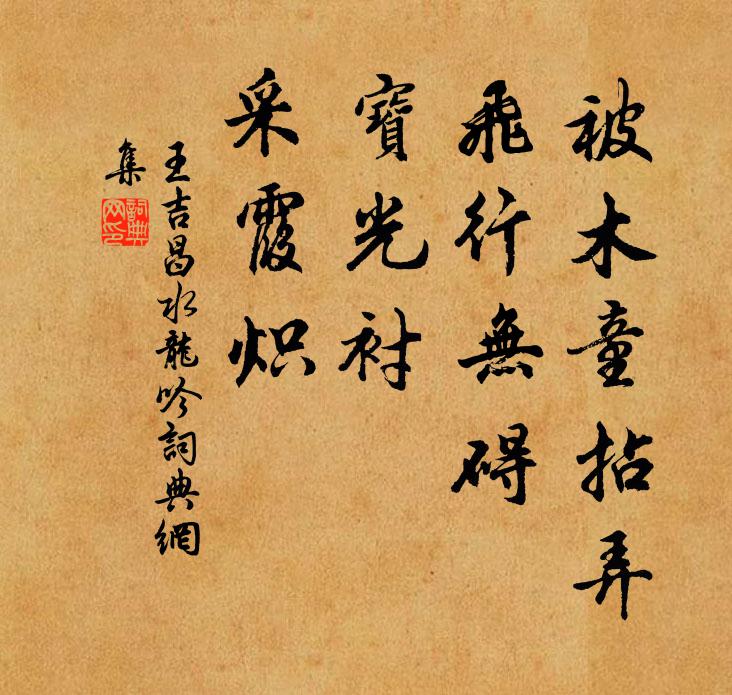 被木童拈弄
飛行無碍
寶光衬
采霞炽
王吉昌水龍吟詞典網
集
詞典
网印